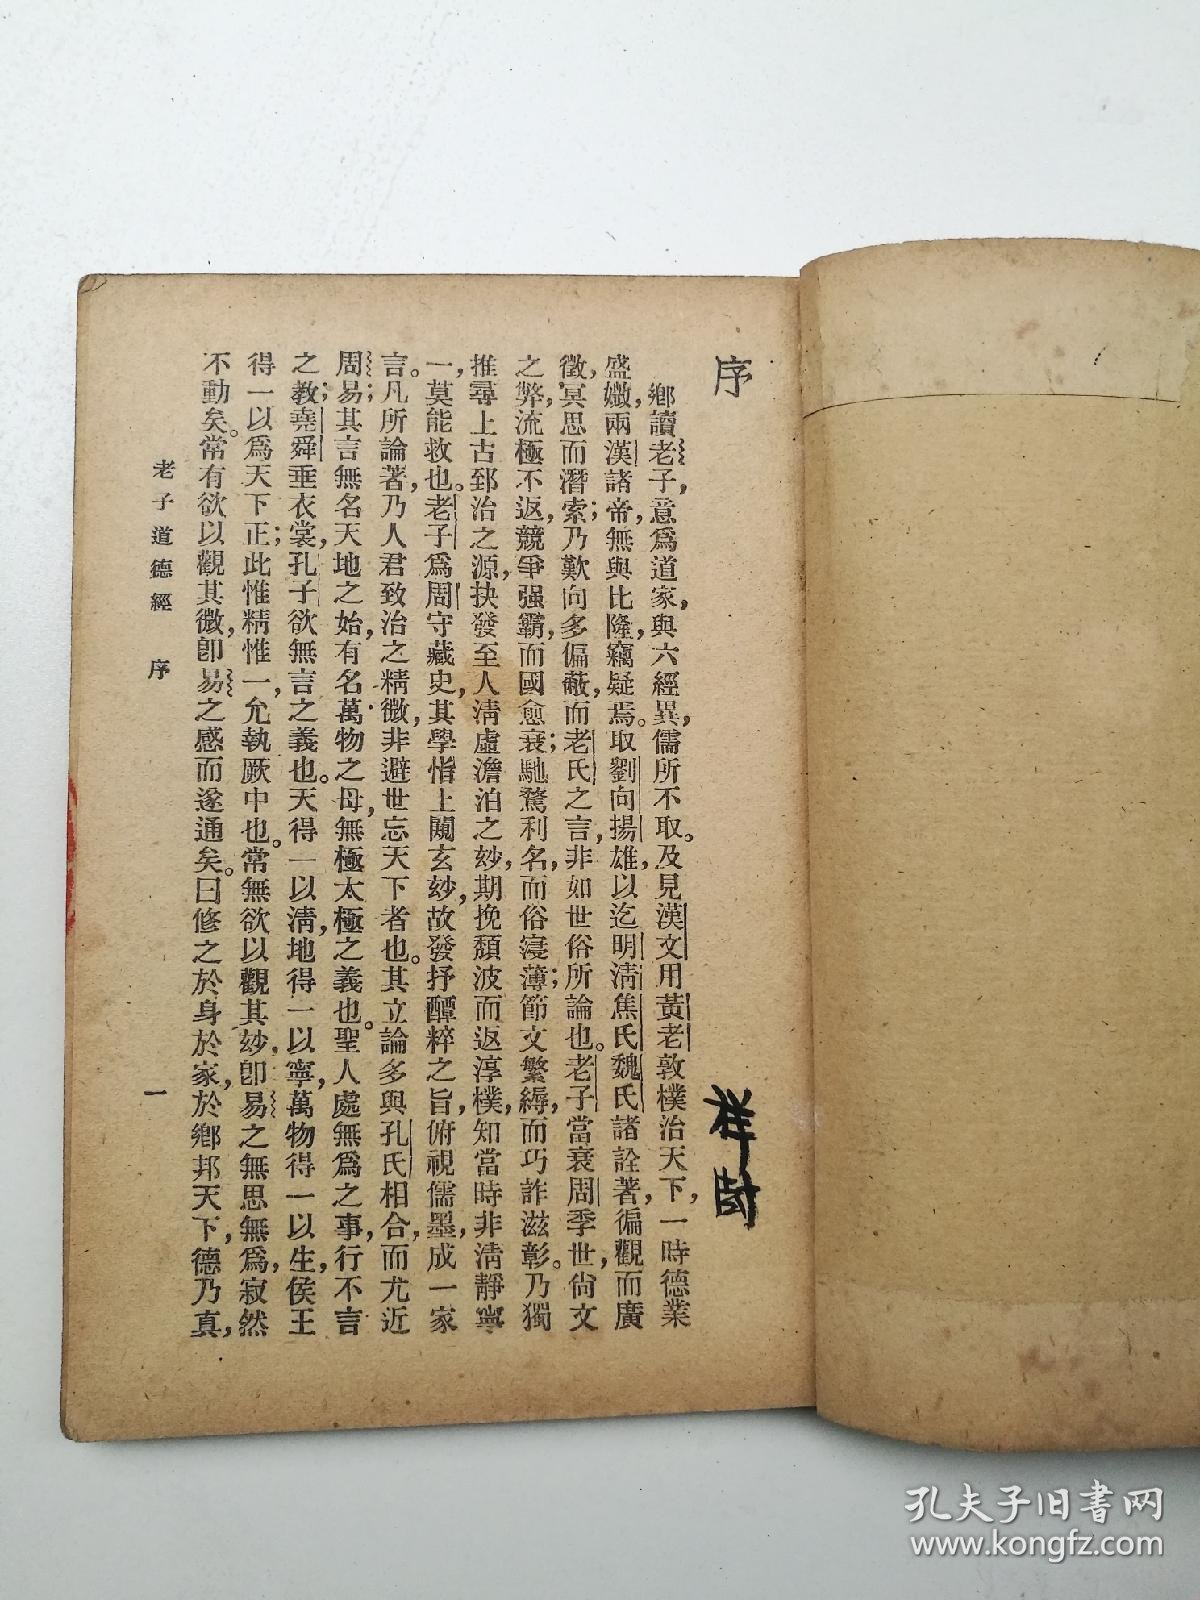 序
鄉讀老子，意爲道家，與六經異，儒所不取。及見漢文用黃老敦樸治天下，一時德業
盛媺，兩漢諸帝，無與比隆，竊疑焉。取劉向揚雄，以迄明清焦氏魏氏諸詮著，徧觀而廣
徵，冥思而潛索；乃歎向多偏蔽，而老氏之言，非如世俗所論也。老子當衰周季世，尙文
之弊，流極不返，競爭强霸，而國愈衰；馳騖利名，而俗寖薄；節文繁縟，而巧詐滋彰。乃獨
推尋上古郅治之源，抉發至人清虛澹泊之玅，期挽頹波而返淳樸，知當時非清靜寧
一，莫能救也。老子爲周守藏史，其學恉上闚玄玅，故發抒醰粹之旨，俯視儒墨，成一家
言。凡所論著，乃人君致治之精微，非避世忘天下者也。其立論多與孔氏相合，而尤近
周易；其言無名天地之始，有名萬物之母，無極太極之義也。聖人處無爲之事，行不言
之教；堯舜垂衣裳，孔子欲無言之義也。天得一以清，地得一以寧，萬物得一以生，侯王
得一以爲天下正；此惟精惟一，允執厥中也。常無欲以觀其玅，卽易之無思無爲，寂然
不動矣。常有欲以觀其徼，卽易之感而遂通矣。曰修之於身於家，於鄉邦天下，德乃真，
老子道德經 序
一
祥
孔夫子旧书网
www.kongfz.com